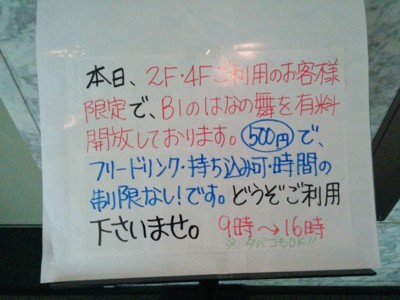 本日、2F・4Fご利用のお客様
限定で、B1のはなの舞を有料
開放しております。500円で、
フリードリンク・持ち込み可・時間の
制限なし!です。どうぞご利用
下さいませ。 9時〜→16時
※・タバコもOK!!